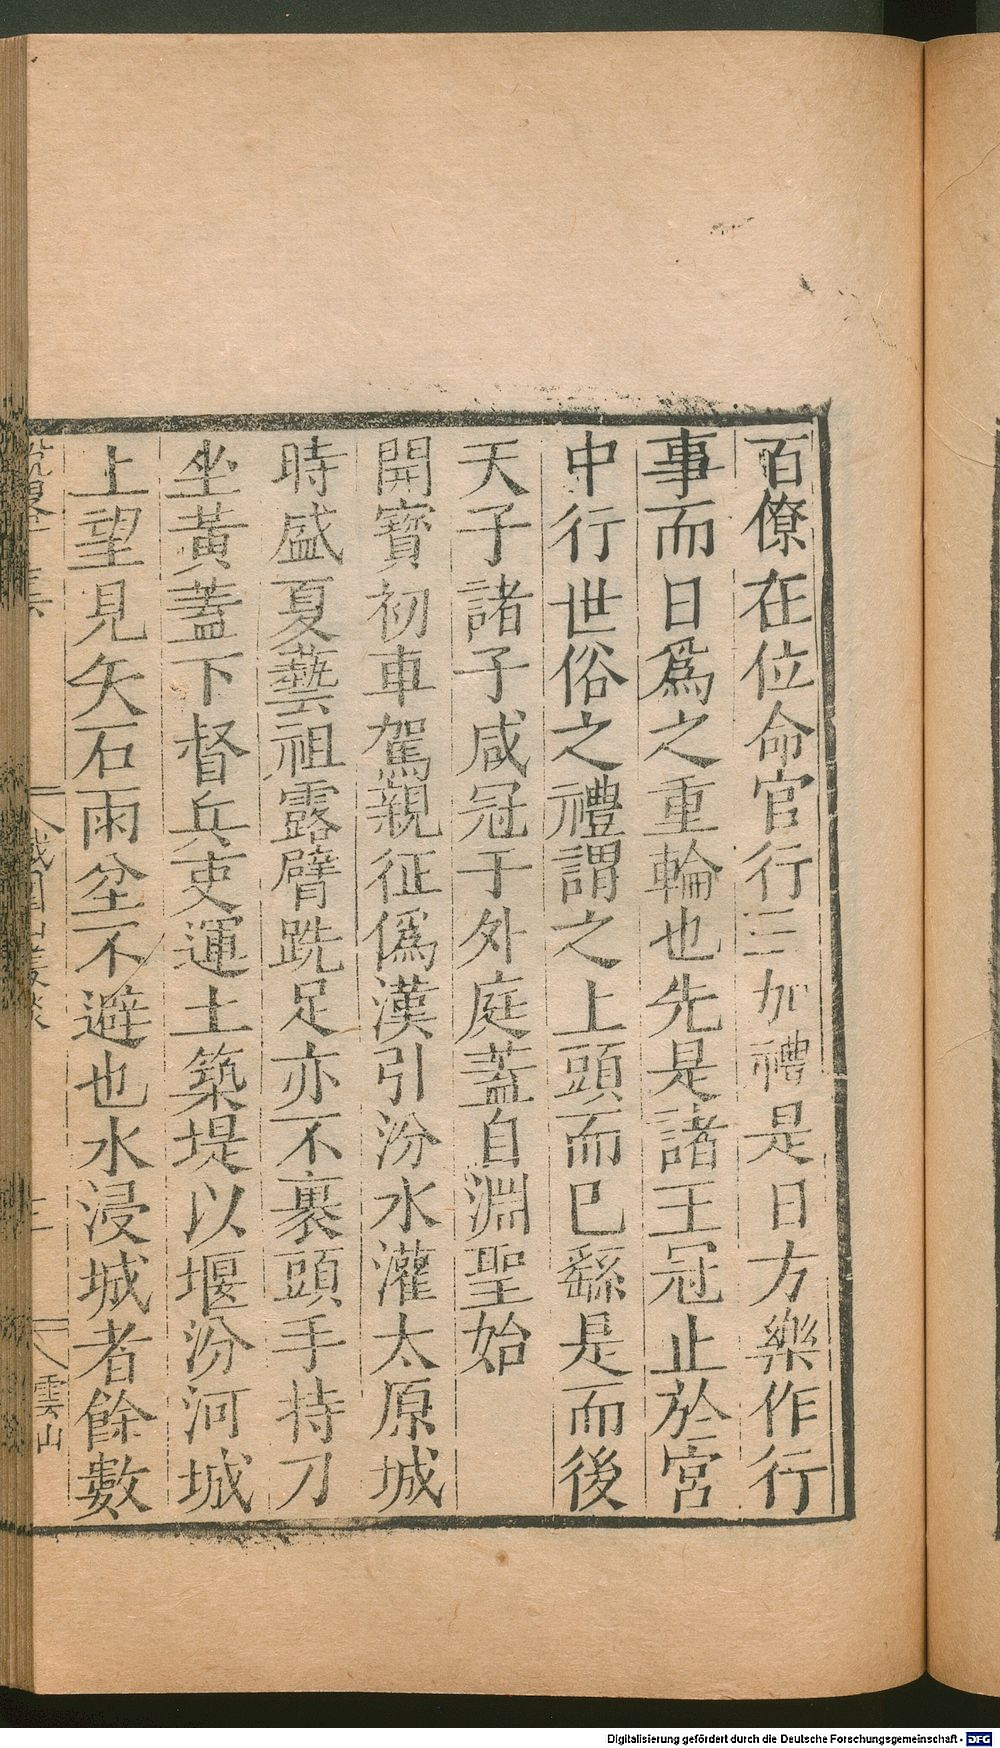 百僚在位命官行三加禮是日方樂作行
事而日爲之重輪也先是諸王冠止於宮
中行世俗之禮謂之上頭而巳繇是而後
天子諸子咸冠于外庭蓋自淵聖始
開寶初車駕親征僞漢引汾水灌太原城
時盛夏藝祖露臂跣足亦不裹頭手持刀
坐黃蓋下督兵吏運土築堤以堰汾河城
上望見矢石雨坌不避也水浸城者餘數
鐵圍山叢談
三
雲山
Digitalisierung gefördert durch die Deutsche Forschungsgemeinschaft - DFG